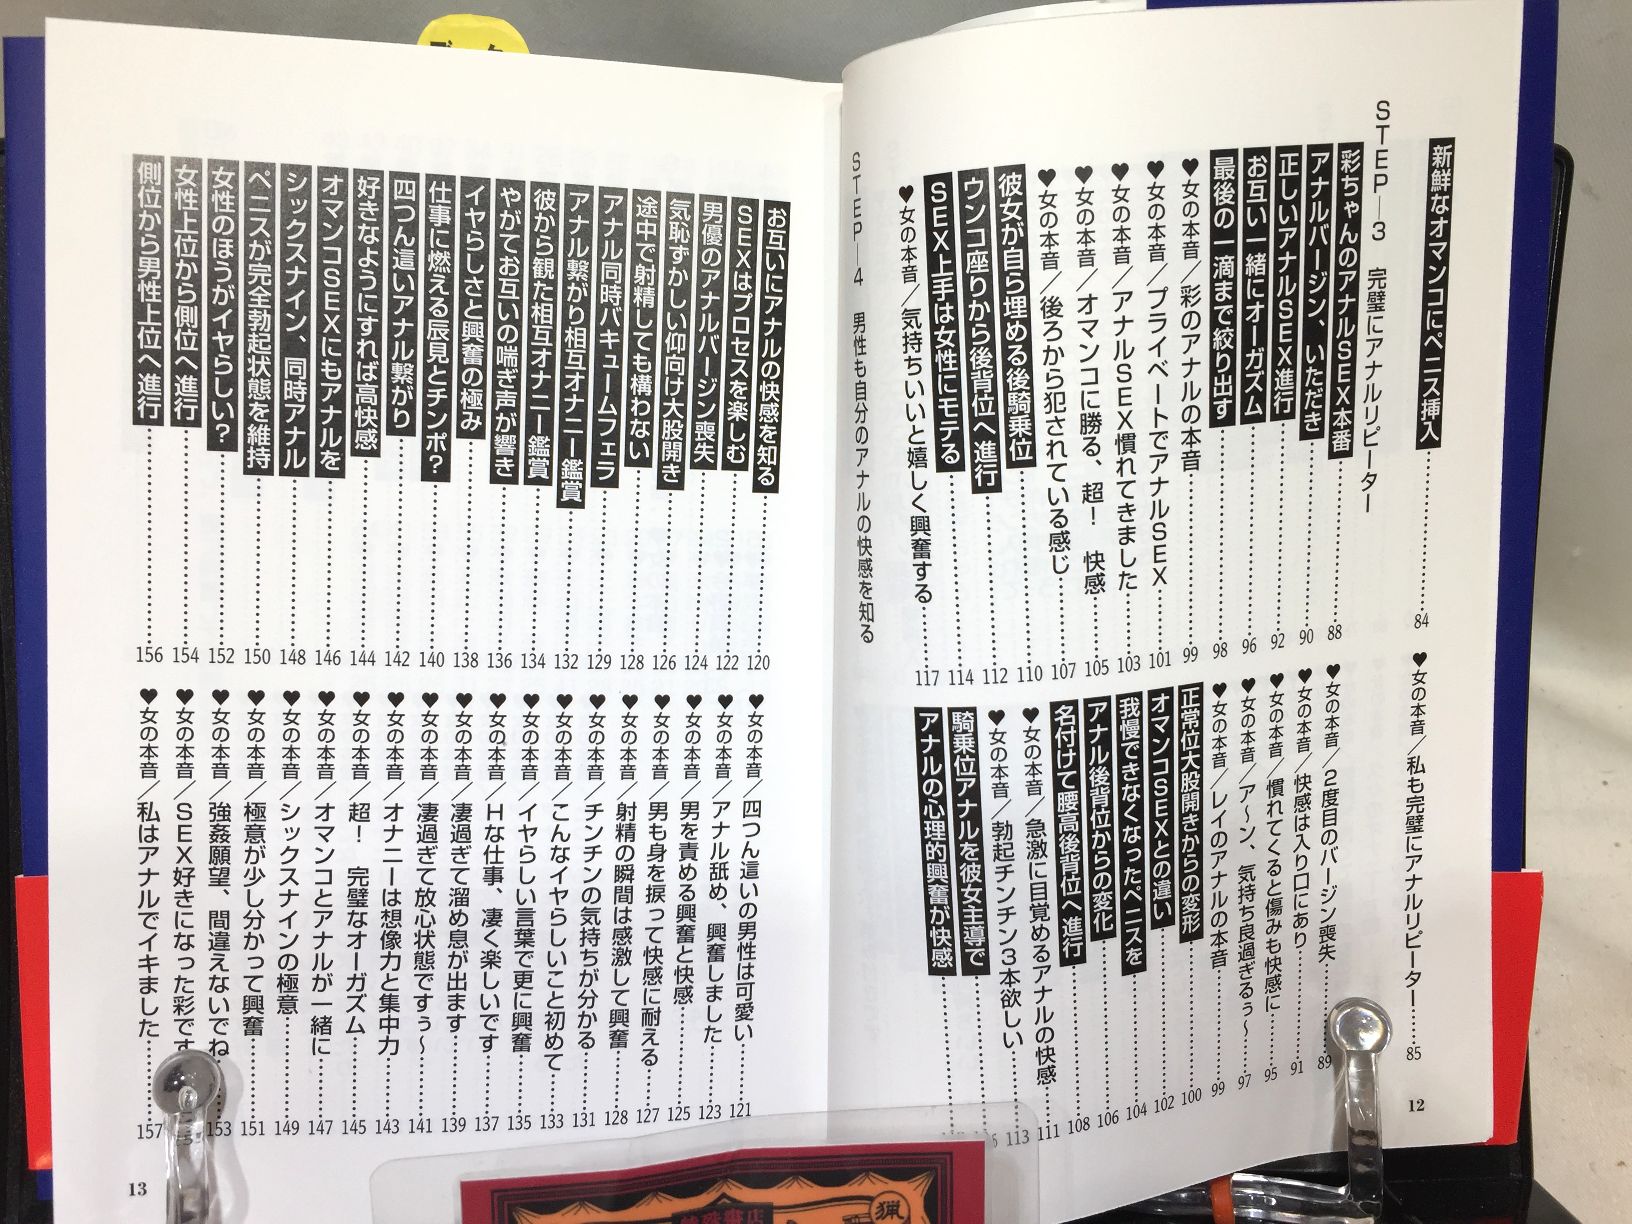 新鮮なオマンコにペニス挿入……84
STEP―3 完璧にアナルリピーター
彩ちゃんのアナルSEX本番……88
アナルバージン、いただき……90
正しいアナルSEX進行……92
お互い一緒にオーガズム……96
最後の一滴まで絞り出す……98
♥女の本音／彩のアナルの本音……99
♥女の本音／プライベートでアナルSEX……101
♥女の本音／アナルSEX慣れてきました……103
♥女の本音／オマンコに勝る、超! 快感……105
♥女の本音／後ろから犯されている感じ……107
彼女が自ら埋める後騎乗位……110
ウンコ座りから後背位へ進行……112
SEX上手は女性にモテる……114
♥女の本音／気持ちいいと嬉しく興奮する……117
STEP―4 男性も自分のアナルの快感を知る
♥女の本音／私も完璧にアナルリピーター……85
♥女の本音／2度目のバージン喪失……89
♥女の本音／快感は入り口にあり……91
♥女の本音／慣れてくると傷みも快感に……95
♥女の本音／ア〜ン、気持ち良過ぎるぅ〜……97
♥女の本音／レイのアナルの本音……99
正常位大股開きからの変形……100
オマンコSEXとの違い……102
我慢できなくなったペニスを……104
アナル後背位からの変化……106
名付けて腰高後背位へ進行……108
♥女の本音／急激に目覚めるアナルの快感……111
♥女の本音／勃起チンチン3本欲しい……113
騎乗位アナルを彼女主導で……
アナルの心理的興奮が快感……
12
お互いにアナルの快感を知る……120
SEXはプロセスを楽しむ……122
男優のアナルバージン喪失……124
気恥ずかしい仰向け大股開き……126
途中で射精しても構わない……128
アナル同時バキュームフェラ……129
アナル繋がり相互オナニー鑑賞……132
彼から観た相互オナニー鑑賞……134
やがてお互いの喘ぎ声が響き……136
イヤらしさと興奮の極み……138
仕事に燃える辰見とチンポ?……140
四つん這いアナル繋がり……142
好きなようにすれば高快感……144
オマンコSEXにもアナルを……146
シックスナイン、同時アナル……148
ペニスが完全勃起状態を維持……150
女性のほうがイヤらしい?……152
女性上位から側位へ進行……154
側位から男性上位へ進行……156
♥女の本音／四つん這いの男性は可愛い……121
♥女の本音／アナル舐め、興奮しました……123
♥女の本音／男を責める興奮と快感……125
♥女の本音／男も身を捩って快感に耐える……127
♥女の本音／射精の瞬間は感激して興奮……128
♥女の本音／チンチンの気持ちが分かる……131
♥女の本音／こんなイヤらしいこと初めて……133
♥女の本音／イヤらしい言葉で更に興奮……135
♥女の本音／Hな仕事、凄く楽しいです……137
♥女の本音／凄過ぎて溜め息が出ます……139
♥女の本音／凄過ぎて放心状態ですぅ〜……141
♥女の本音／オナニーは想像力と集中力……143
♥女の本音／超! 完璧なオーガズム……145
♥女の本音／オマンコとアナルが一緒に……147
♥女の本音／シックスナインの極意……149
♥女の本音／極意が少し分かって興奮……151
♥女の本音／強姦願望、間違えないでね……153
♥女の本音／SEX好きになった彩です
♥女の本音／私はアナルでイキました……157
13
猟